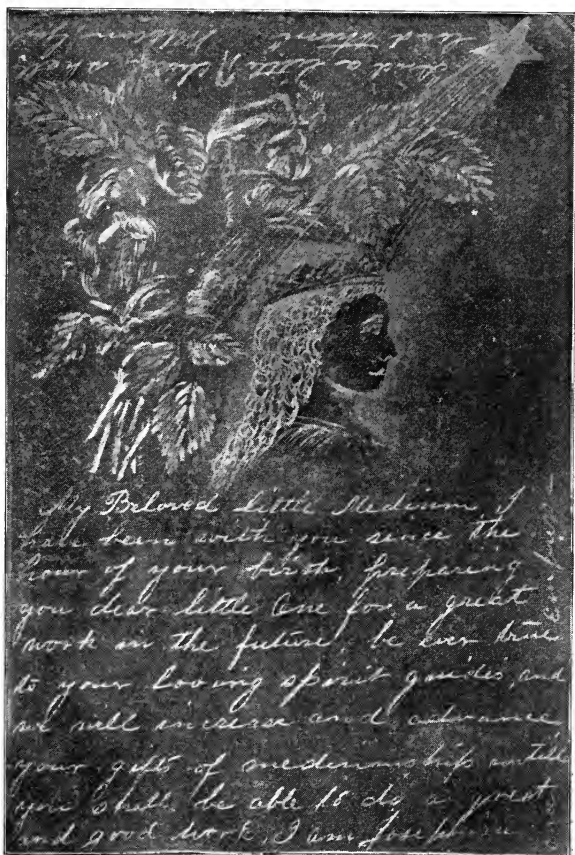 And a little child shall
lead them
My Beloved little Medium, I
have been with you since the
hour of your birth, preparing
you dear little One for a great
work in the future, be ever true
to your loving spirit guides, and
we will increase and advance
your gifts of mediumship untill
you Shall be able to do a great
and good work, I am Josephine